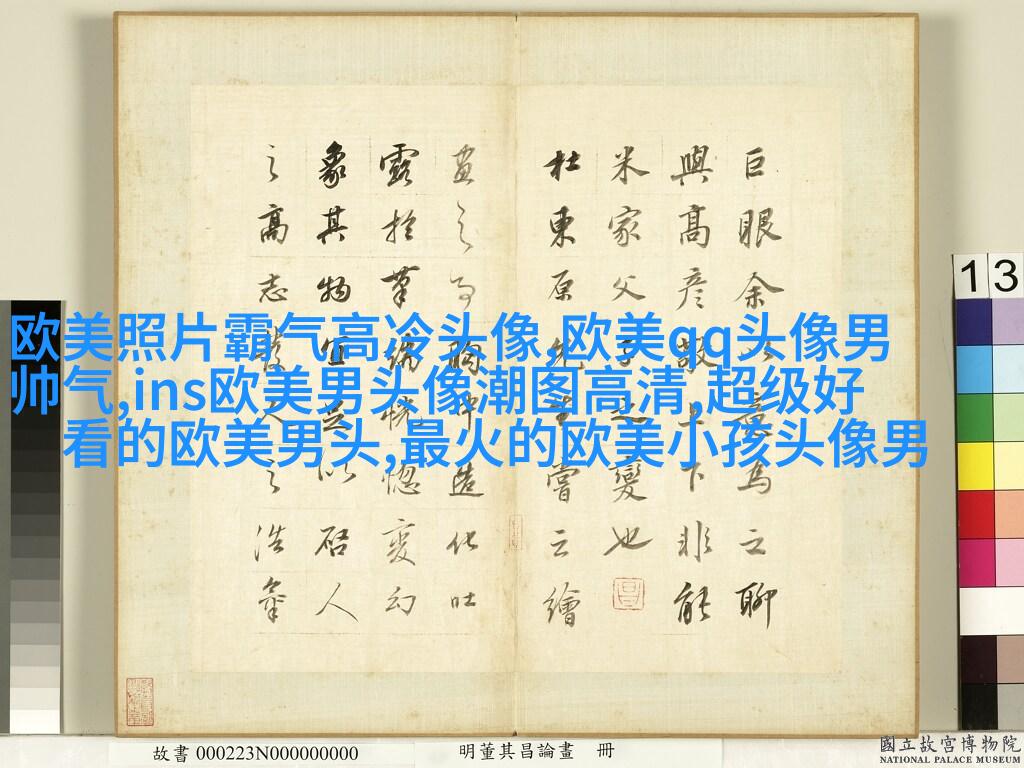 欧美照片霸气高冷头像,欧美qq头像男
帅气,ins欧美男头像潮图高清,超级好
看的欧美男头,最火的欧美小孩头像男
巨眼余意為之聊
與高彥敬上下非能
米家父子之變也
杜東原先生嘗云繪
畫之事胸造化吐
露於筆端恍惚變幻
象其物宜足以啟人
之高志發人之浩氣
13
故書 000223N000000000
明董其昌論畫 冊
國立故宮博物院
NATIONAL PALACE MUSEUM